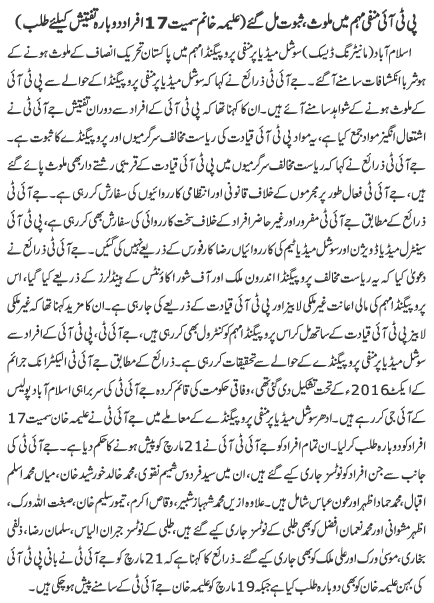 پی ٹی آئی منفی مہم میں ملوث، ثبوت مل گئے (علیمہ خانم سمیت 17 افراد دوبارہ تفتیش کیلئے طلب)
اسلام آباد (مانیٹرنگ ڈیسک) سوشل میڈیا پر منفی پروپیگنڈا مہم میں پاکستان تحریک انصاف کے ملوث ہونے کے
ہوشربا انکشافات سامنے آ گئے۔ جے آئی ٹی ذرائع نے کہا کہ سوشل میڈیا پر منفی پروپیگنڈا کے حوالے سے پی ٹی آئی
کے ملوث ہونے کے شواہد سامنے آئے ہیں۔ ان کا کہنا تھا کہ پی ٹی آئی کے افراد سے دوران تفتیش جے آئی ٹی نے
اشتعال انگیز مواد جمع کیا ہے، یہ مواد پی ٹی آئی قیادت کی ریاست مخالف سرگرمیوں اور پروپیگنڈے کا ثبوت ہے۔
جے آئی ٹی ذرائع نے کہا کہ ریاست مخالف سرگرمیوں میں پی ٹی آئی قیادت کے قریبی رشتے دار بھی ملوث پائے گئے
ہیں، جے آئی ٹی فعال طور پر مجرموں کے خلاف قانونی اور انتظامی کارروائیوں کی سفارش کر رہی ہے۔ جے آئی ٹی
ذرائع کے مطابق جے آئی ٹی مفرور اور غیر حاضر افراد کے خلاف سخت کارروائی کی سفارش بھی کر رہی ہے، پی ٹی آئی
سینٹرل میڈیا ڈویژن اور سوشل میڈیا ٹیم کی کارروائیاں رضا کار فورس کے ذریعے نہیں کی گئیں۔ جے آئی ٹی ذرائع نے
دعویٰ کیا کہ یہ ریاست مخالف پروپیگنڈا اندرون ملک اور آف شور اکاؤنٹس کے ہینڈلرز کے ذریعے کیا گیا، اس
پروپیگنڈا مہم کی مالی اعانت غیر ملکی لابیز اور پی ٹی آئی قیادت کے ذریعے کی جا رہی ہے۔ ان کا مزید کہنا تھا کہ غیر ملکی
لابیز پی ٹی آئی قیادت کے ساتھ مل کر اس پروپیگنڈا مہم کو کنٹرول بھی کر رہی ہیں، جے آئی ٹی، پی ٹی آئی کے افراد سے
سوشل میڈیا پر منفی پروپیگنڈے کے حوالے سے تحقیقات کر رہی ہے۔ ذرائع کے مطابق جے آئی ٹی الیکٹرانک جرائم
کے ایکٹ 2016ء کے تحت تشکیل دی گئی تھی، وفاقی حکومت کی قائم کردہ جے آئی ٹی کی سربراہی اسلام آباد پولیس
کے آئی جی کر رہے ہیں۔ ادھر سوشل میڈیا پر منفی پروپیگنڈے کے معاملے میں جے آئی ٹی نے علیمہ خان سمیت 17
افراد کو دوبارہ طلب کر لیا۔ ان تمام افراد کو جے آئی ٹی نے 21 مارچ کو پیش ہونے کا حکم دیا ہے۔ جے آئی ٹی کی
جانب سے جن افراد کو نوٹسز جاری کیے گئے ہیں، ان میں سید فردوس شمیم نقوی، محمد خالد خورشید خان، میاں محمد اسلم
اقبال، محمد حماد اظہر اور عون عباس شامل ہیں۔ علاوہ ازیں محمد شہباز شبیر، وقاص اکرم، تیمور سلیم خان، صبغت اللہ ورک،
اظہر مشوانی اور محمد نعمان افضل کو بھی طلبی کے نوٹسز جاری کیے گئے ہیں، طلبی کے نوٹسز جبران الیاس، سلمان رضا، ذلفی
بخاری، موسیٰ ورک اور علی ملک کو بھی جاری کیے گئے۔ ذرائع کا کہنا ہے کہ 21 مارچ کو جے آئی ٹی نے بانی پی ٹی آئی
کی بہن علیمہ خان کو بھی دوبارہ طلب کیا ہے جبکہ 19 مارچ کو علیمہ خان جے آئی ٹی کے سامنے پیش ہو چکی ہیں۔